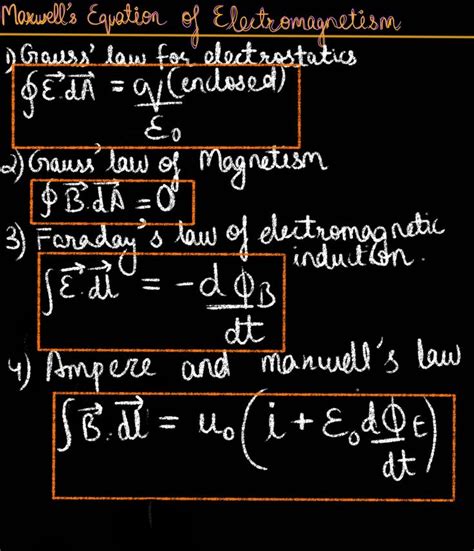 Maxwell's Equation of Electromagnetism
1) Gauss' law for electrostatics
∮E⃗.dA⃗ = q(enclosed)/ε₀
2) Gauss' law of Magnetism
∮B⃗.dA⃗ = 0
3) Faraday's law of electromagnetic
induction.
∫E⃗.dl⃗ = -dϕB/dt
4) Ampere and maxwell's law
∫B⃗.dl⃗ = u₀(i + ε₀dϕE/dt)